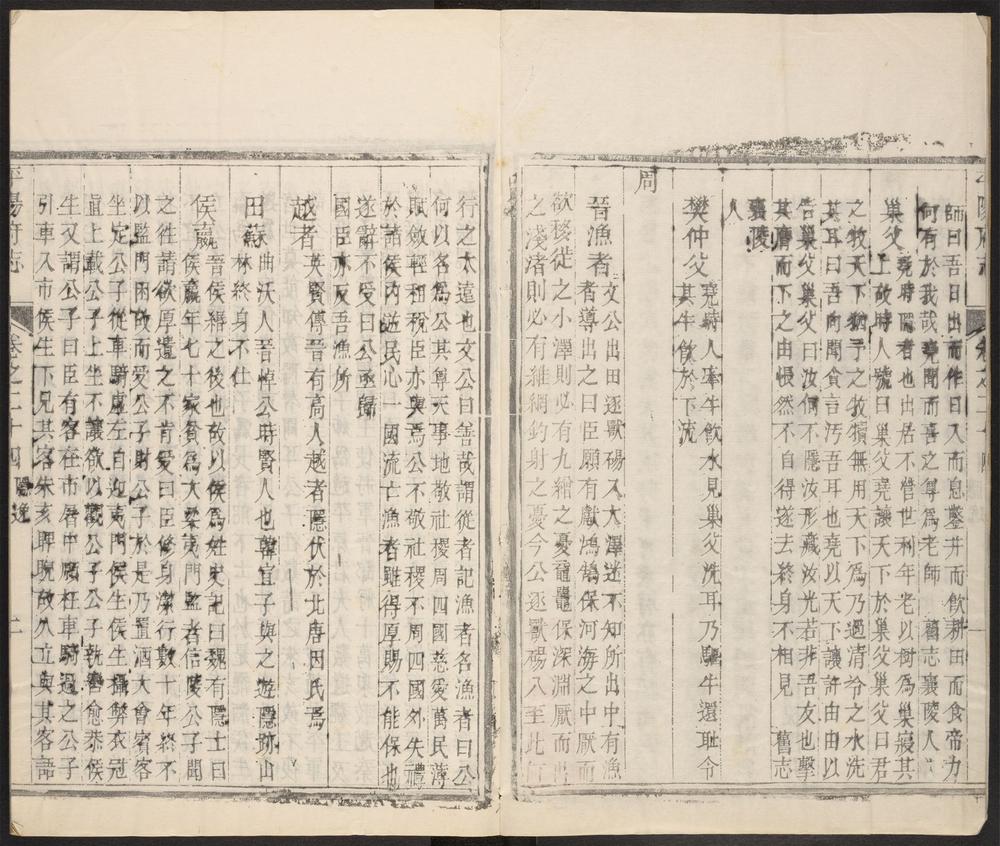 師曰吾日出而作日入而息鑿井而飲耕田而食帝力
何有於我哉堯聞而喜之尊爲老師 舊志襄陵人
巢父 堯時隱者也山居不營世利年老以樹爲巢寢其
上故時人號曰巢父堯讓天下於巢父巢父曰君
之牧天下猶予之牧犢無用天下爲乃過清泠之水洗
其耳曰吾向聞貪言汚吾耳也堯以天下讓許由由以
告巢父巢父曰汝何不隱汝形藏汝光若非吾友也擊
其膺而下之由悵然不自得遂去終身不相見 舊志
襄陵
人
樊仲父 堯時人牽牛飲水見巢父洗耳乃驅牛還耻令
其牛飲於下流
周
晉漁者 文公出田逐獸碭入大澤迷不知所出中有漁
者導出之曰臣願有獻鴻鵠保河海之中厭而
欲移徙之小澤則必有九繒之憂黿鼉保深淵厭而出
之淺渚則必有羅網釣射之憂今公逐獸碭入至此何
行之太遠也文公曰善哉謂從者記漁者名漁者曰公
何以名爲公其尊天事地敬社稷周四國慈愛萬民薄
賦斂輕租稅臣亦與焉公不敬社稷不周四國外失禮
於諸侯內逆民心一國流亡漁者雖得厚賜不能保也
遂辭不受曰公亟歸
國臣亦反吾漁所
越者 英賢傳晉有高人越者隱伏於北唐因氏焉
田蘇 曲沃人晉悼公時賢人也韓宣子與之遊隱跡山
林終身不仕
侯嬴 晉侯緡之後也故以侯爲姓史記曰魏有隱士曰
侯嬴年七十家貧爲大梁夷門監者信陵公子聞
之往請欲厚遺之不肯受曰臣修身潔行數十年終不
以監門困故而受公子財公子於是乃置酒大會賓客
坐定公子從車騎虛左自迎夷門侯生侯生攝弊衣冠
直上載公子上坐不讓欲以觀公子公子執轡愈恭侯
生又謂公子曰臣有客在市屠中願枉車騎過之公子
引車入市侯生下見其客朱亥睥睨故久立與其客語
平陽府志 卷之二十四 隱逸 二